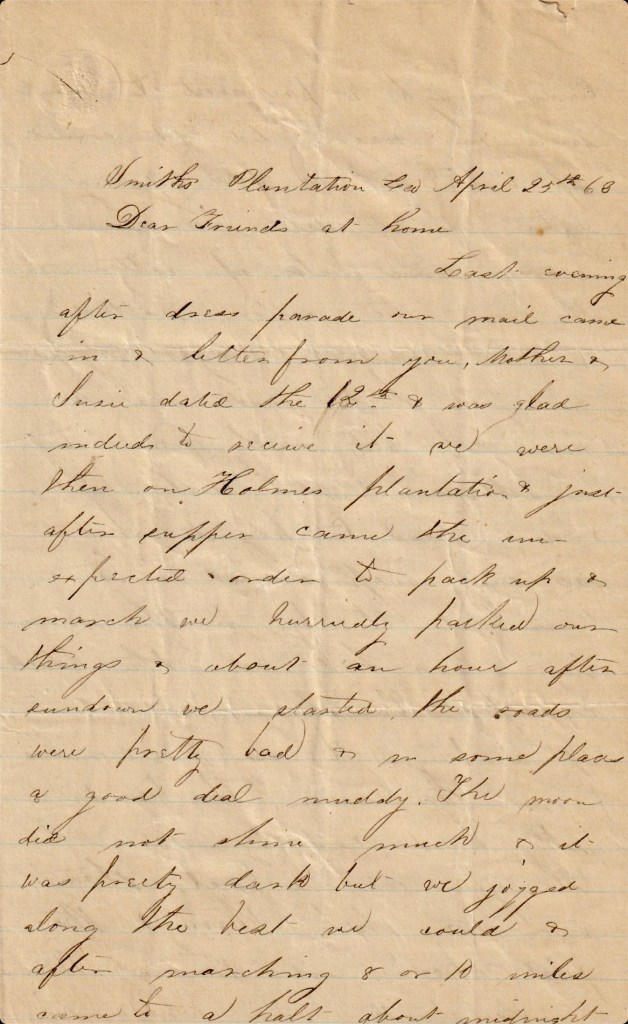 Smiths Plantation La April 25th 63
Dear Friends at home
Last evening
after dress parade our mail came
in & letter from you, Mother &
Susie dated the 12th & was glad
indeed to receive it we were
then on Holmes plantation & just
after supper came the un-
expected order to pack up &
march we hurriedly packed our
things & about an hour after
sundown we started, the roads
were pretty bad & in some places
a good deal muddy. The moon
did not shine much & it
was pretty dark but we jogged
along the best we could &
after marching 8 or 10 miles
came to a halt about midnight